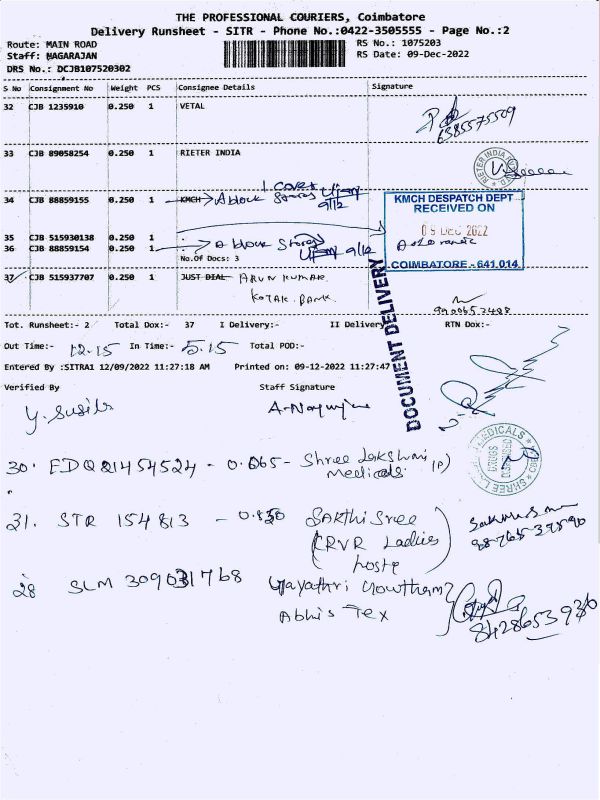 THE PROFESSIONAL COURIERS, Coimbatore
Delivery Runsheet - SITR - Phone No.:0422-3505555 - Page No.:2
Route: MAIN ROAD
RS No.: 1075203
Staff: NAGARAJAN
RS Date: 09-Dec-2022
DRS No.: DCJB107520302
S No Consignment No Weight PCS Consignee Details Signature
32 CJB 1235910 0.250 1 VETAL
6385575509
33 CJB 89058254 0.250 1 RIETER INDIA
RIETER INDIA
1 Cover
34 CJB 88859155 0.250 1 KMCH A block Stores 9/12
KMCH DESPATCH DEPT
RECEIVED ON
09 DEC 2022
COIMBATORE - 641,014
35 CJB 515930138 0.250 1
36 CJB 88859154 0.250 1 A block Stores 9/12
No.Of Docs: 3
37 CJB 515937707 0.250 1 JUST DIAL ARUN KUMAR
KOTAK BANK
DOCUMENT DELIVERY
Tot. Runsheet:- 2 Total Dox:- 37 I Delivery:- II Delivery RTN Dox:-
Out Time:- 12.15 In Time:- 5.15 Total POD:-
Entered By :SITRA1 12/09/2022 11:27:18 AM Printed on: 09-12-2022 11:27:47
Verified By Staff Signature
y. Susila
30. EDQ 21454524 - 0.065 - Shree Lakshmi (P)
Medicals
SHREE MEDICALS
DRUGS DISPENSED
31. STR 154813 - 0.830 SAKthi Sree
(RVR Ladies
hoste
28 SLM 309031768 Gayathri Gowtham
Abhis Tex
8428653930